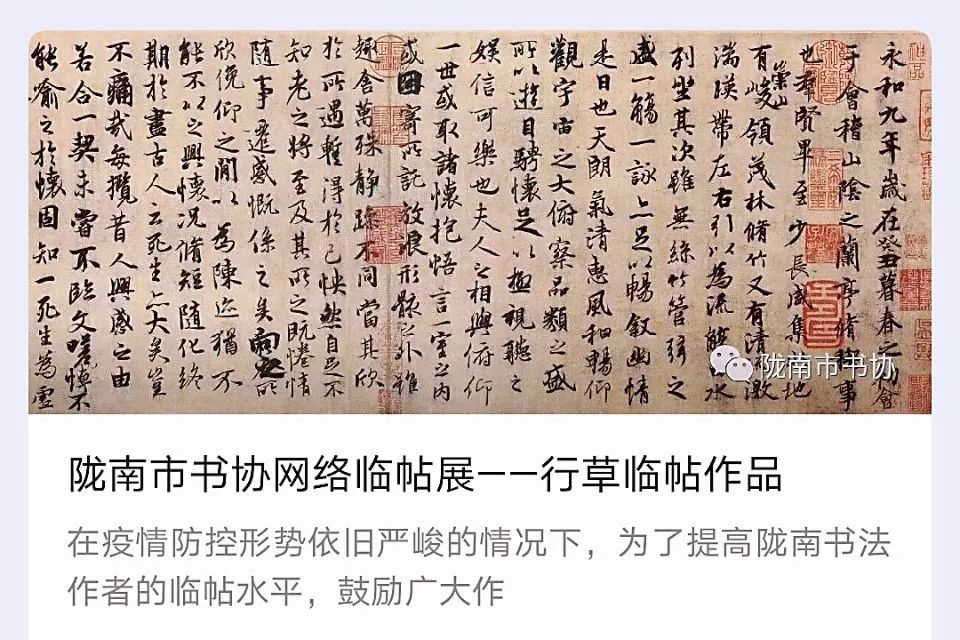 永和九年歲在癸丑暮春之初會
于會稽山陰之蘭亭脩稧事
也羣賢畢至少長咸集此地
有崇山峻領茂林脩竹又有清流激
湍暎帶左右引以為流觴曲水
列坐其次雖無絲竹管弦之
盛一觴一詠亦足以暢敘幽情
是日也天朗氣清惠風和暢仰
觀宇宙之大俯察品類之盛
所以遊目騁懷足以極視聽之
娛信可樂也夫人之相與俯仰
一世或取諸懷抱悟言一室之內
或因寄所託放浪形骸之外雖
趣舍萬殊靜躁不同當其欣
於所遇暫得於己怏然自足不
知老之將至及其所之既惓情
隨事遷感慨係之矣向之所
欣俛仰之閒以為陳迹猶不
能不以之興懷況脩短隨化終
期於盡古人云死生亦大矣豈
不痛哉每攬昔人興感之由
若合一契未嘗不臨文嗟悼不
能喻之於懷固知一死生為虛
陇南市书协
陇南市书协网络临帖展——行草临帖作品
在疫情防控形势依旧严峻的情况下，为了提高陇南书法
作者的临帖水平，鼓励广大作